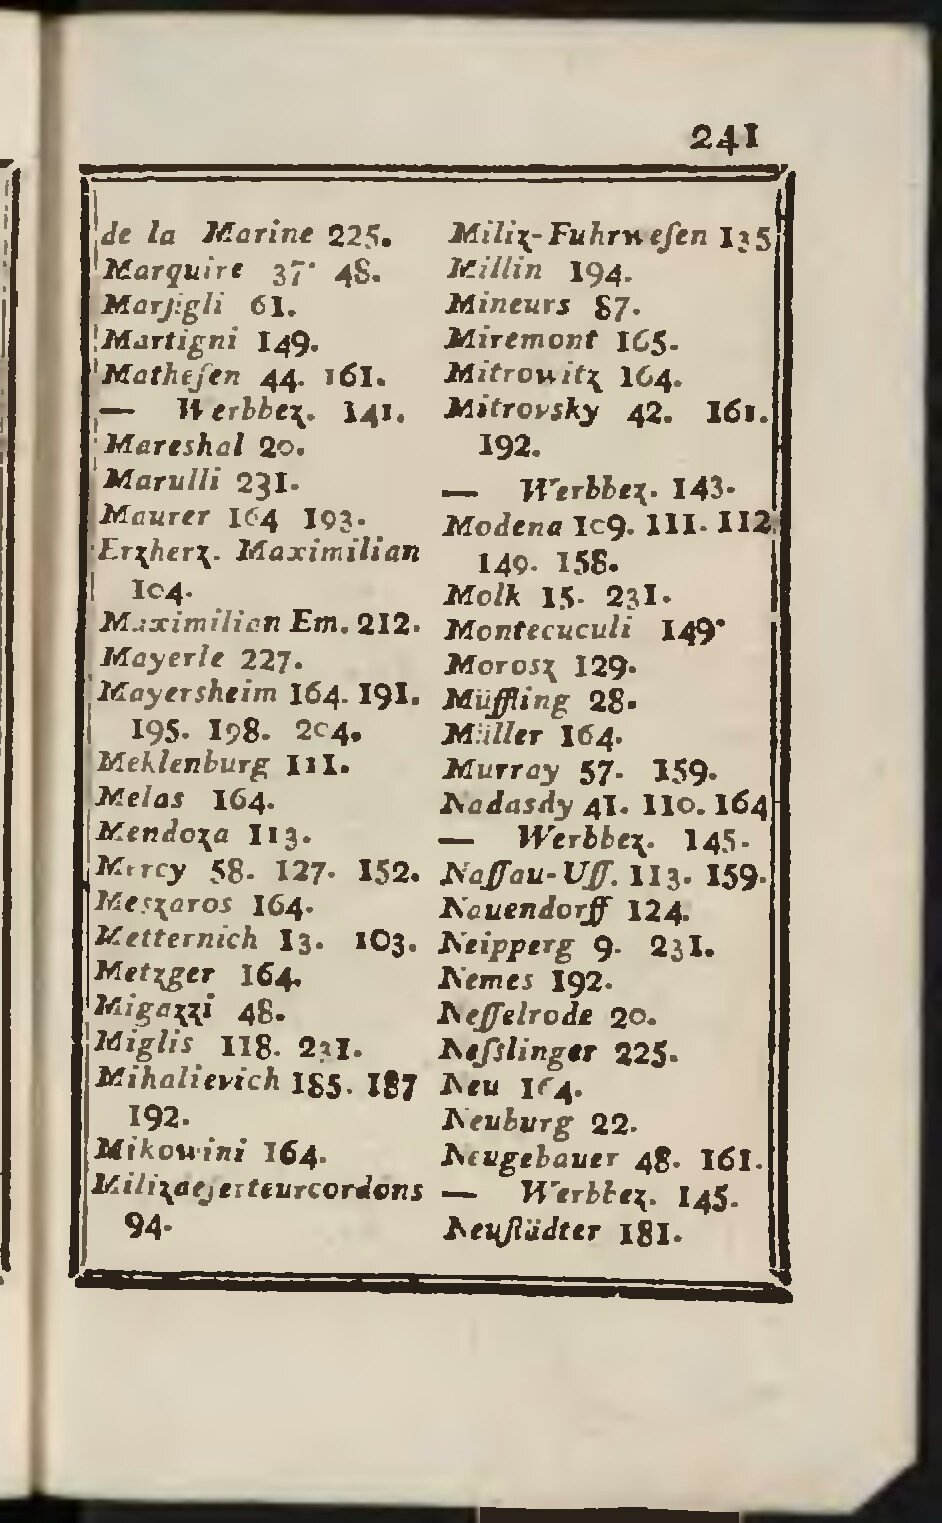 241
de la Marine 225.
Marquire 37. 48.
Marſigli 61.
Martigni 149.
Matheſen 44. 161.
— Werbbez. 141.
Mareshal 20.
Marulli 231.
Maurer 164 193.
Erzherz. Maximilian
104.
Maximilian Em. 212.
Mayerle 227.
Mayersheim 164. 191.
195. 198. 204.
Meklenburg 111.
Melas 164.
Mendoza 113.
Mercy 58. 127. 152.
Meszaros 164.
Metternich 13. 103.
Metzger 164.
Migazzi 48.
Miglis 118. 231.
Mihalievich 185. 187
192.
Mikowini 164.
Milizdeſerteurcordons
94.
Miliz-Fuhrweſen 135
Millin 194.
Mineurs 87.
Miremont 165.
Mitrowitz 164.
Mitrovsky 42. 161.
192.
— Werbbez. 143.
Modena 109. 111. 112
149. 158.
Molk 15. 231.
Montecuculi 149.
Morosz 129.
Müffling 28.
Müller 164.
Murray 57. 159.
Nadasdy 41. 110. 164
— Werbbez. 145.
Naſſau-Uſſ. 113. 159.
Nauendorff 124.
Neipperg 9. 231.
Nemes 192.
Neſſelrode 20.
Neſslinger 225.
Neu 164.
Neuburg 22.
Neugebauer 48. 161.
— Werbbez. 145.
Neuſtädter 181.